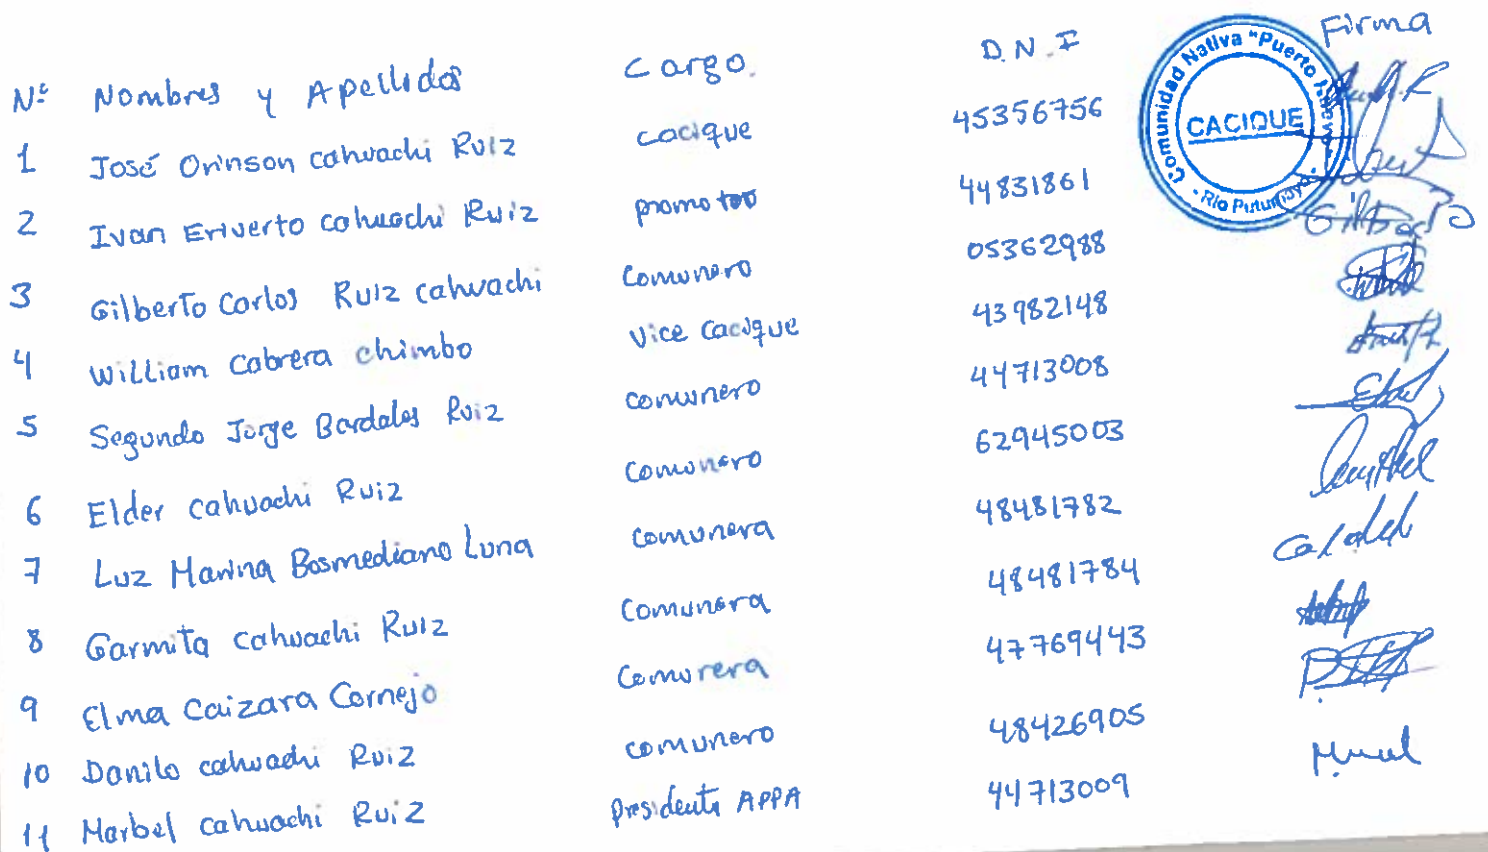 Nº Nombres y Apellidos Cargo. D.N.I Firma
1 José Orinson cahuachi Ruiz cacique 45356756
2 Ivan Eriverto cahuachi Ruiz promotor 44831861
3 Gilberto Carlos Ruiz cahuachi Comunero 05362988 Gilberto
4 William Cabrera chimbo Vice Cacique 43982148
5 Segundo Jorge Bardales Ruiz comunero 44713008
6 Elder cahuachi Ruiz Comunero 62945003
7 Luz Marina Bosmediano Luna comunera 48481782
8 Garmita cahuachi Ruiz Comunera 48481784
9 Elma Caizara Cornejo Comurera 47769443
10 Danilo cahuachi Ruiz comunero 48426905
11 Marbel cahuachi Ruiz presidente APPA 44713009
Comunidad Nativa "Puerto
CACIQUE
Río Putumayo